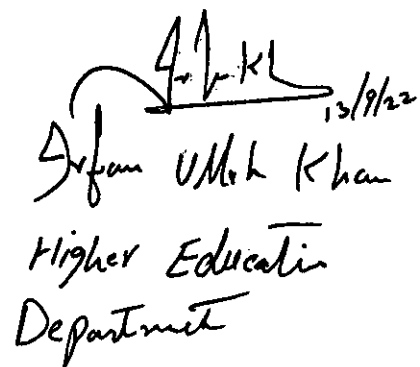 13/9/22
Irfan Ullah Khan
Higher Education
Department